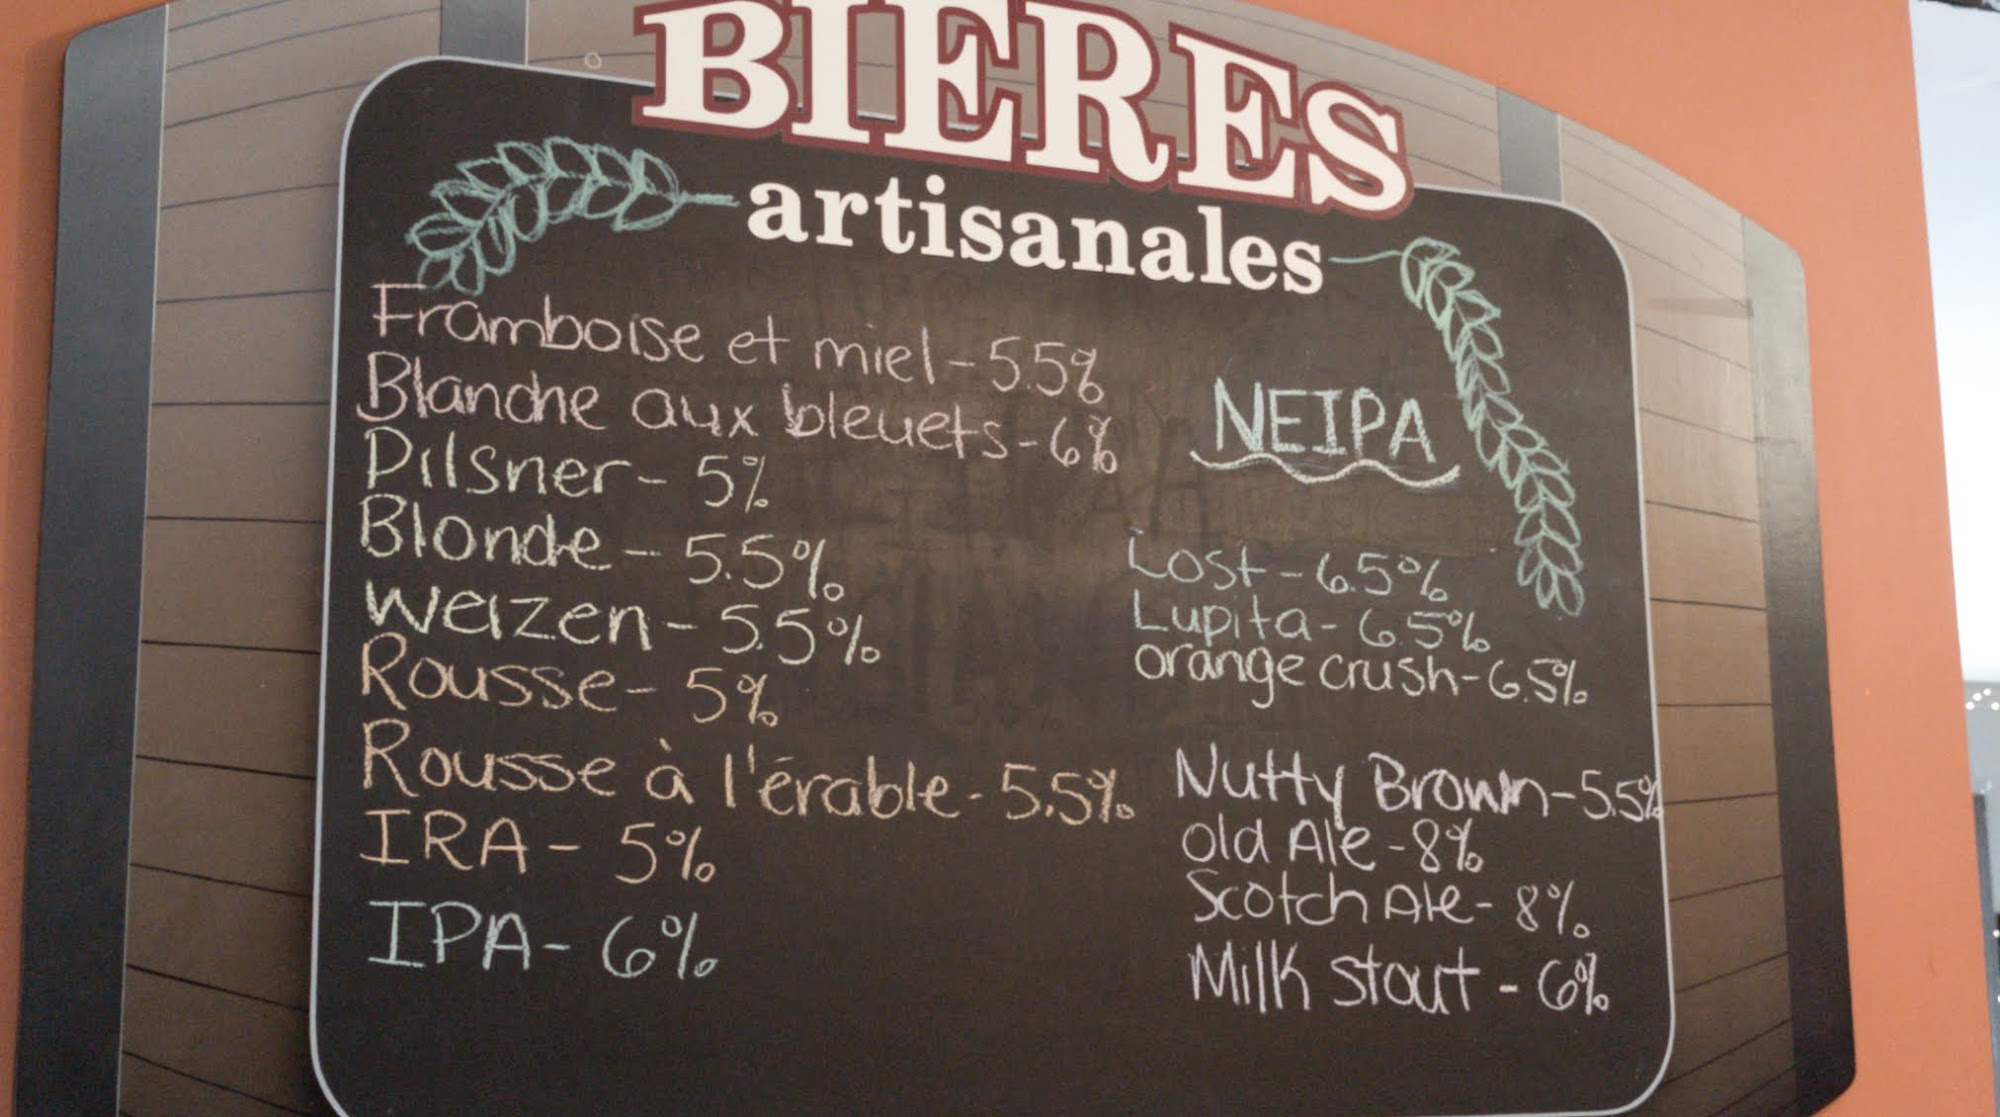 BIERES
artisanales
Framboise et miel - 5.5%
Blanche aux bleuets - 6%
Pilsner - 5%
Blonde - 5.5%
Weizen - 5.5%
Rousse - 5%
Rousse à l'érable - 5.5%
IRA - 5%
IPA - 6%
NEIPA
Lost - 6.5%
Lupita - 6.5%
orange crush - 6.5%
Nutty Brown - 5.5%
old Ale - 8%
Scotch Ale - 8%
Milk stout - 6%